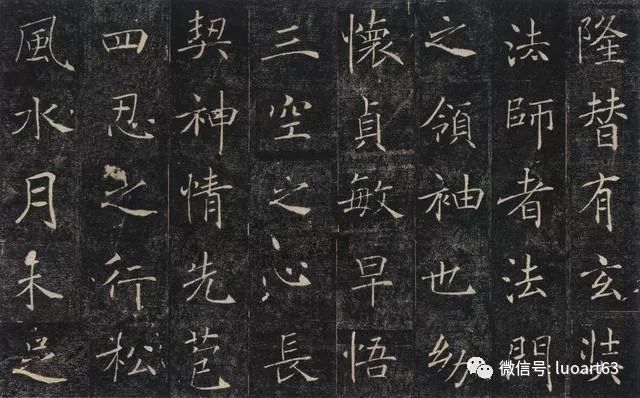 隆替有玄奘
法師者法門
之領袖也幼
懷貞敏早悟
三空之心長
契神情先苞
四忍之行松
風水月未足
微信号: luoart63